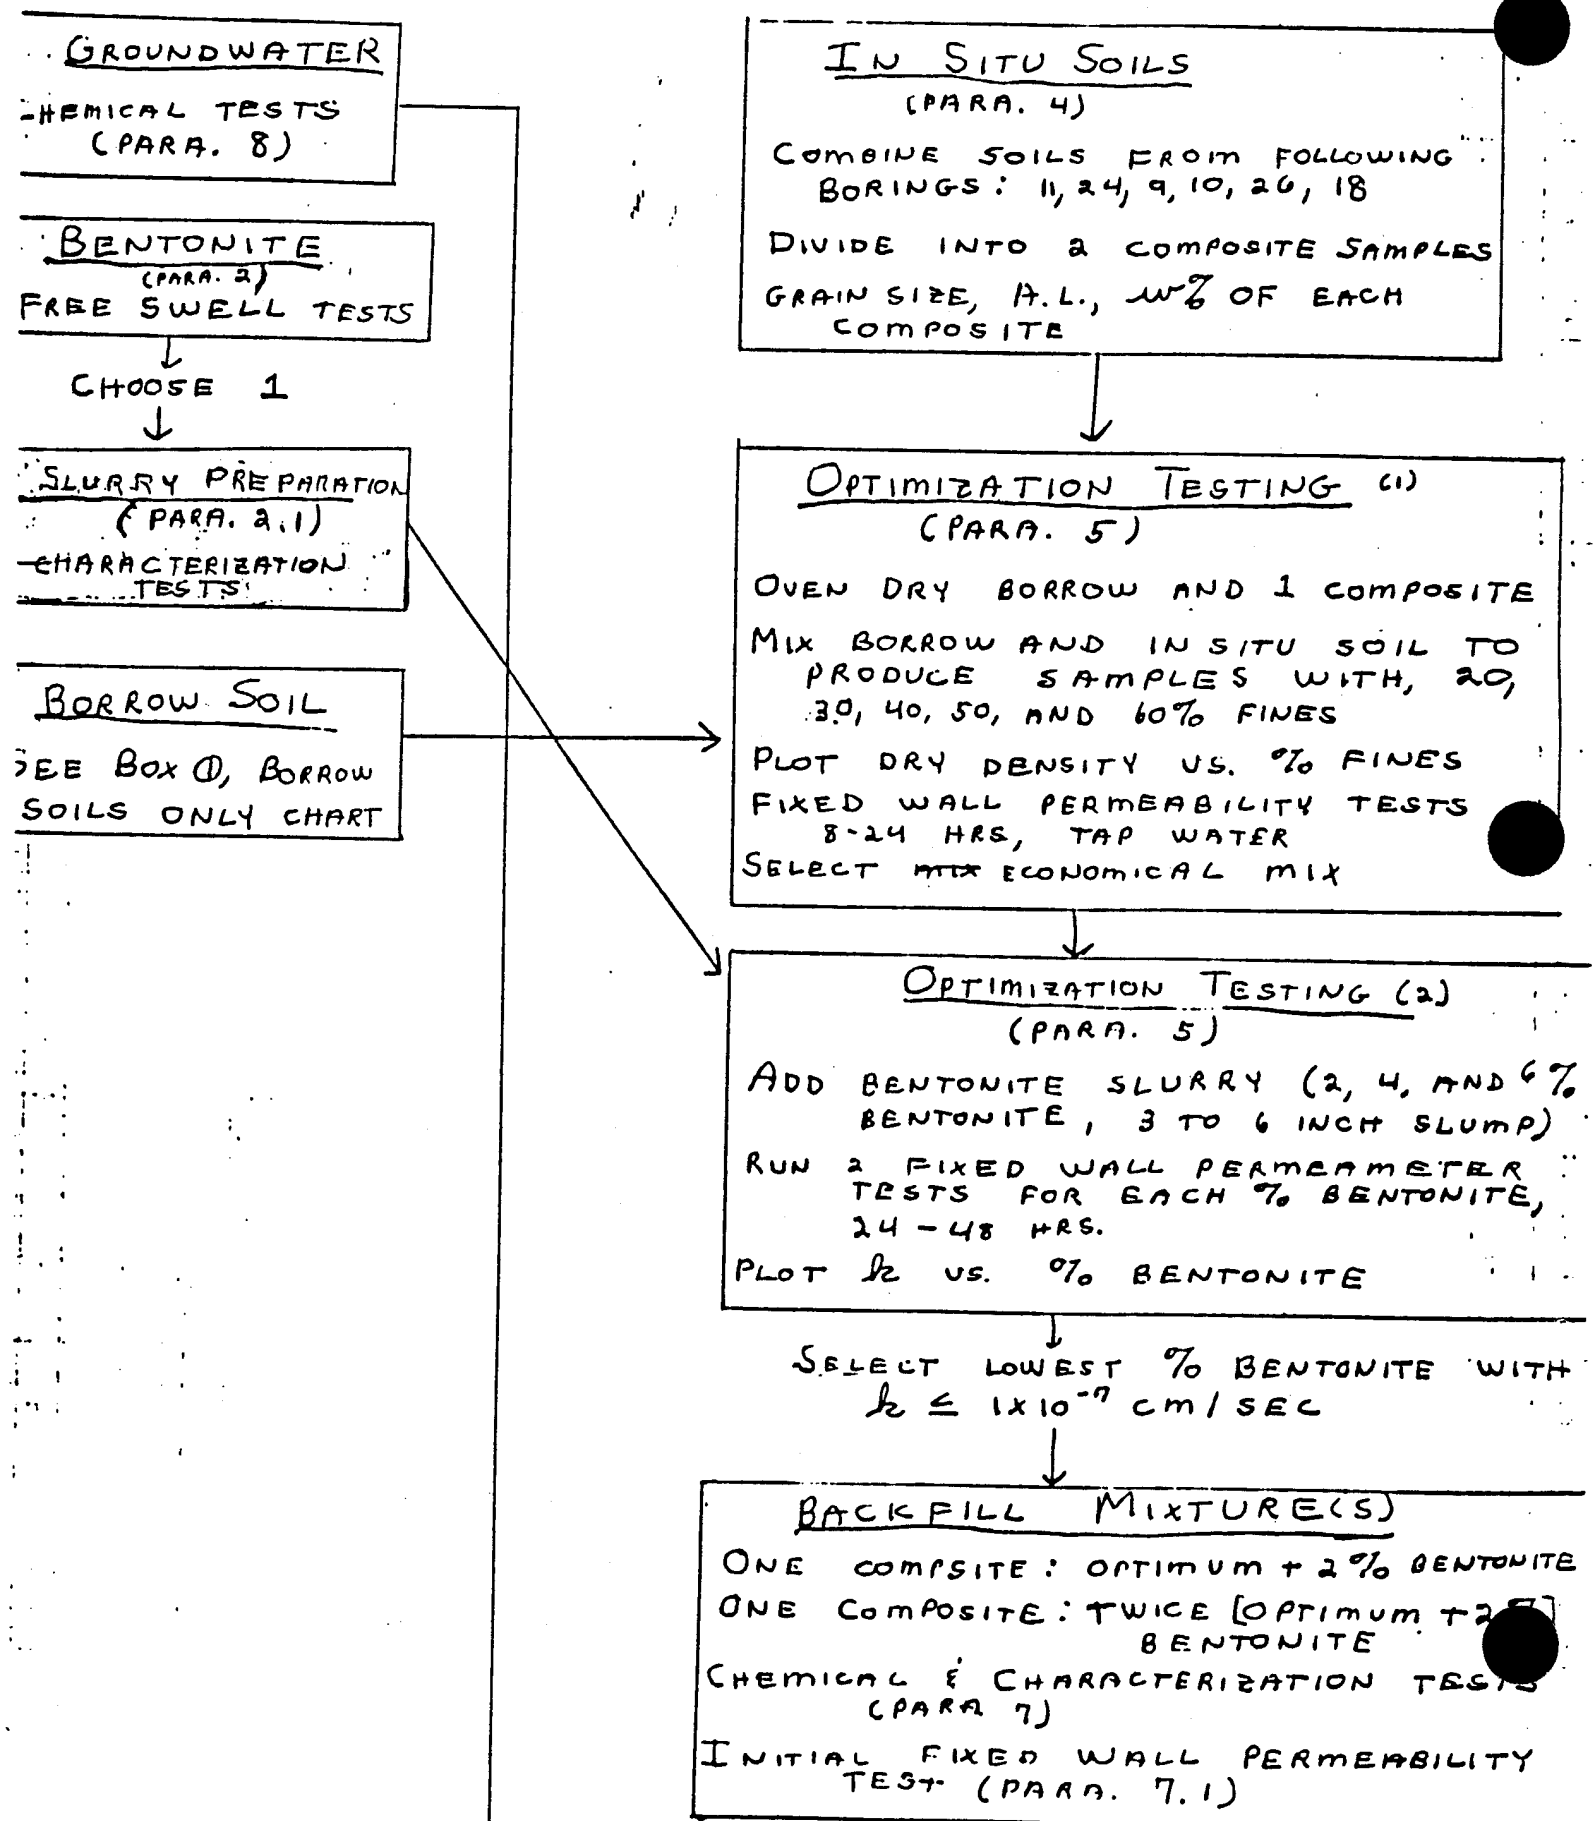 GROUNDWATER
HEMICAL TESTS
(PARA. 8)
BENTONITE
(PARA. 2)
FREE SWELL TESTS
CHOOSE 1
SLURRY PREPARATION
(PARA. 2.1)
CHARACTERIZATION
TESTS
BORROW SOIL
SEE BOX ①, BORROW
SOILS ONLY CHART
IN SITU SOILS
(PARA. 4)
COMBINE SOILS FROM FOLLOWING
BORINGS: 11, 24, 9, 10, 26, 18
DIVIDE INTO 2 COMPOSITE SAMPLES
GRAIN SIZE, A.L., w% OF EACH
COMPOSITE
OPTIMIZATION TESTING (1)
(PARA. 5)
OVEN DRY BORROW AND 1 COMPOSITE
MIX BORROW AND IN SITU SOIL TO
PRODUCE SAMPLES WITH, 20,
30, 40, 50, AND 60% FINES
PLOT DRY DENSITY VS. % FINES
FIXED WALL PERMEABILITY TESTS
8-24 HRS, TAP WATER
SELECT ECONOMICAL MIX
OPTIMIZATION TESTING (2)
(PARA. 5)
ADD BENTONITE SLURRY (2, 4, AND 6%
BENTONITE, 3 TO 6 INCH SLUMP)
RUN 2 FIXED WALL PERMEAMETER
TESTS FOR EACH % BENTONITE,
24-48 HRS.
PLOT k VS. % BENTONITE
SELECT LOWEST % BENTONITE WITH
k ≤ 1x10⁻⁷ cm/SEC
BACKFILL MIXTURE(S)
ONE COMPSITE: OPTIMUM + 2% BENTONITE
ONE COMPOSITE: TWICE [OPTIMUM + 2]
BENTONITE
CHEMICAL & CHARACTERIZATION TESTS
(PARA 7)
INITIAL FIXED WALL PERMEABILITY
TEST (PARA. 7.1)